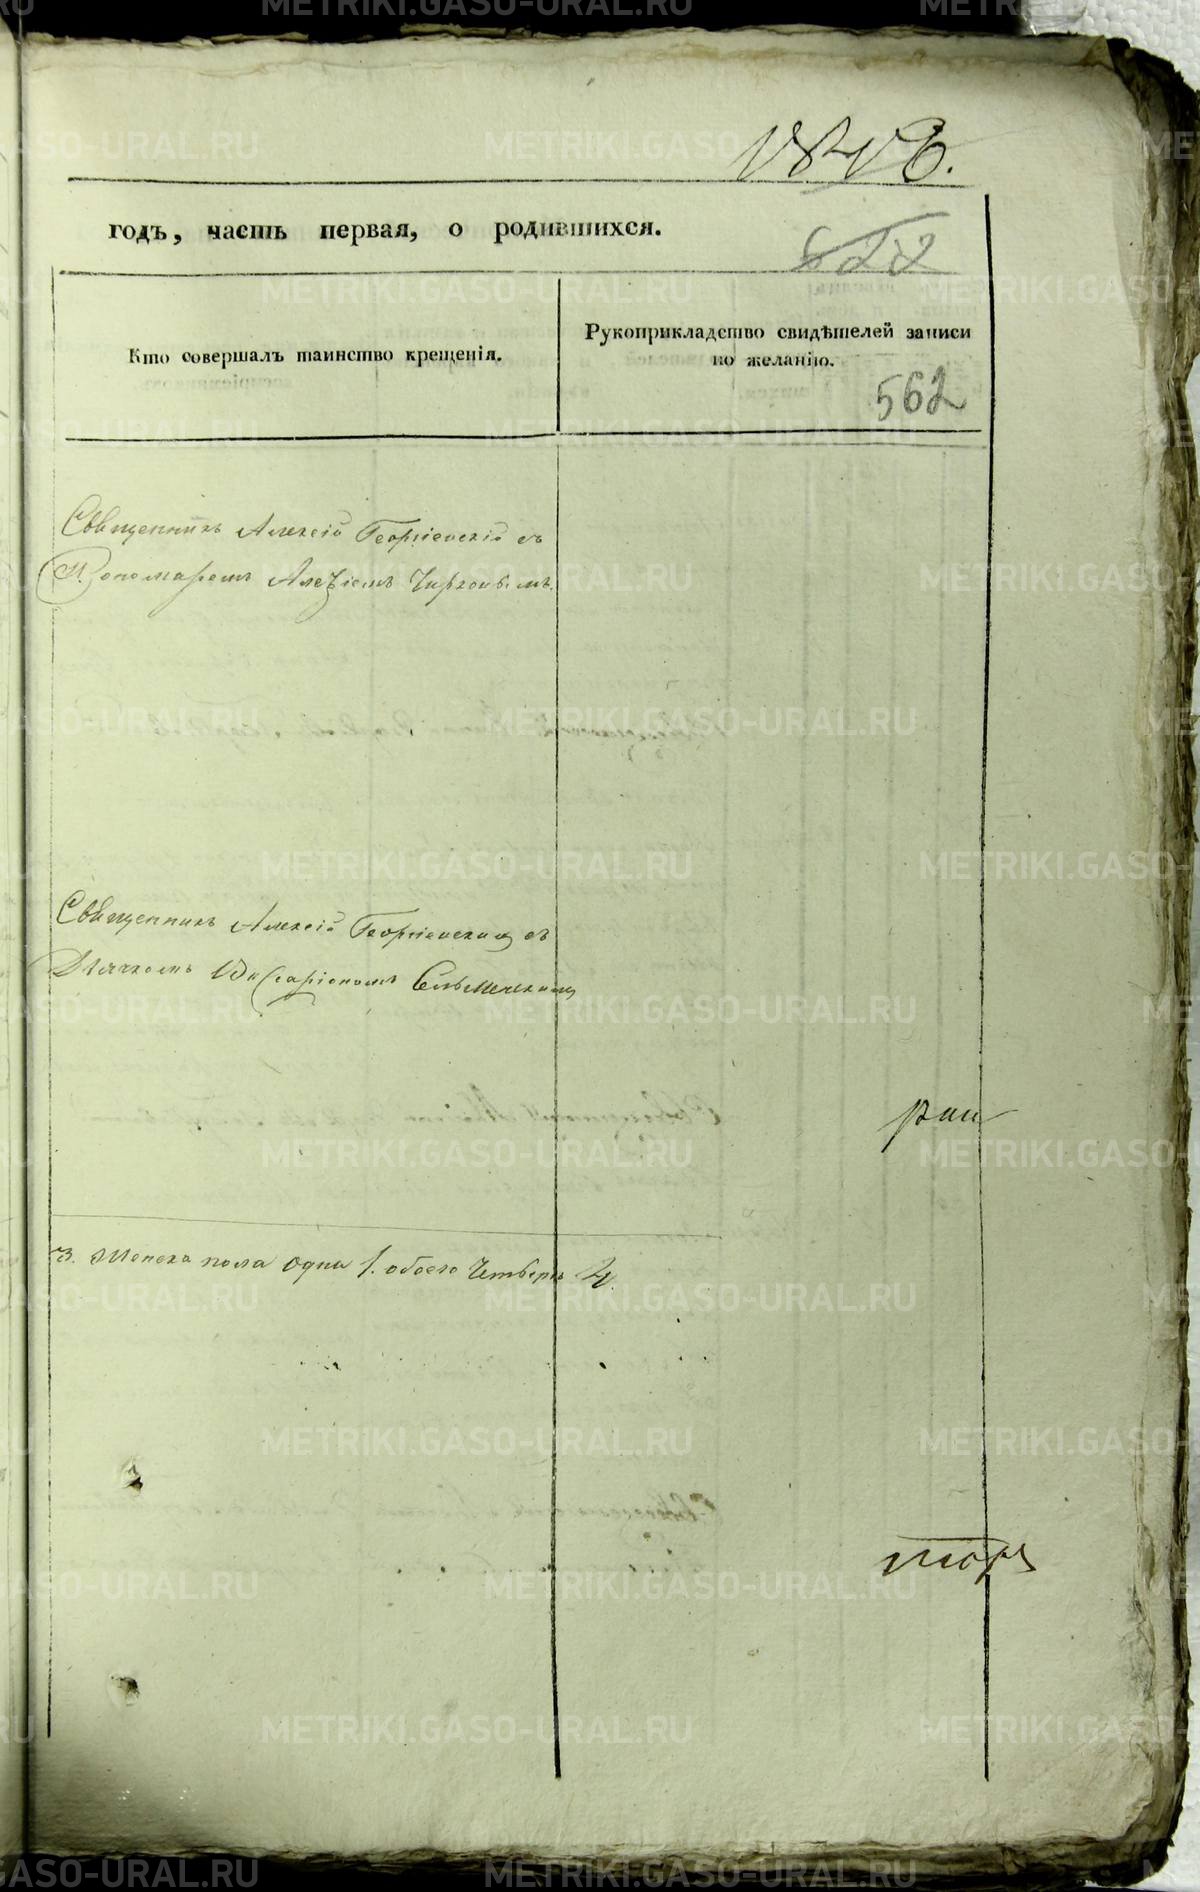 годъ, часть первая, о родившихся.
622
Кто совершалъ таинство крещенія.
Рукоприкладство свидѣтелей записи
по желанію.
562
Священникъ Алексій Георгіевскій съ
Пономаремъ Алексіемъ
Священникъ Алексій Георгіевскій съ
Дьячкомъ Виссаріономъ
3. Женска пола одна 1. обоего Четверо 4.
METRIKI.GASO-URAL.RU